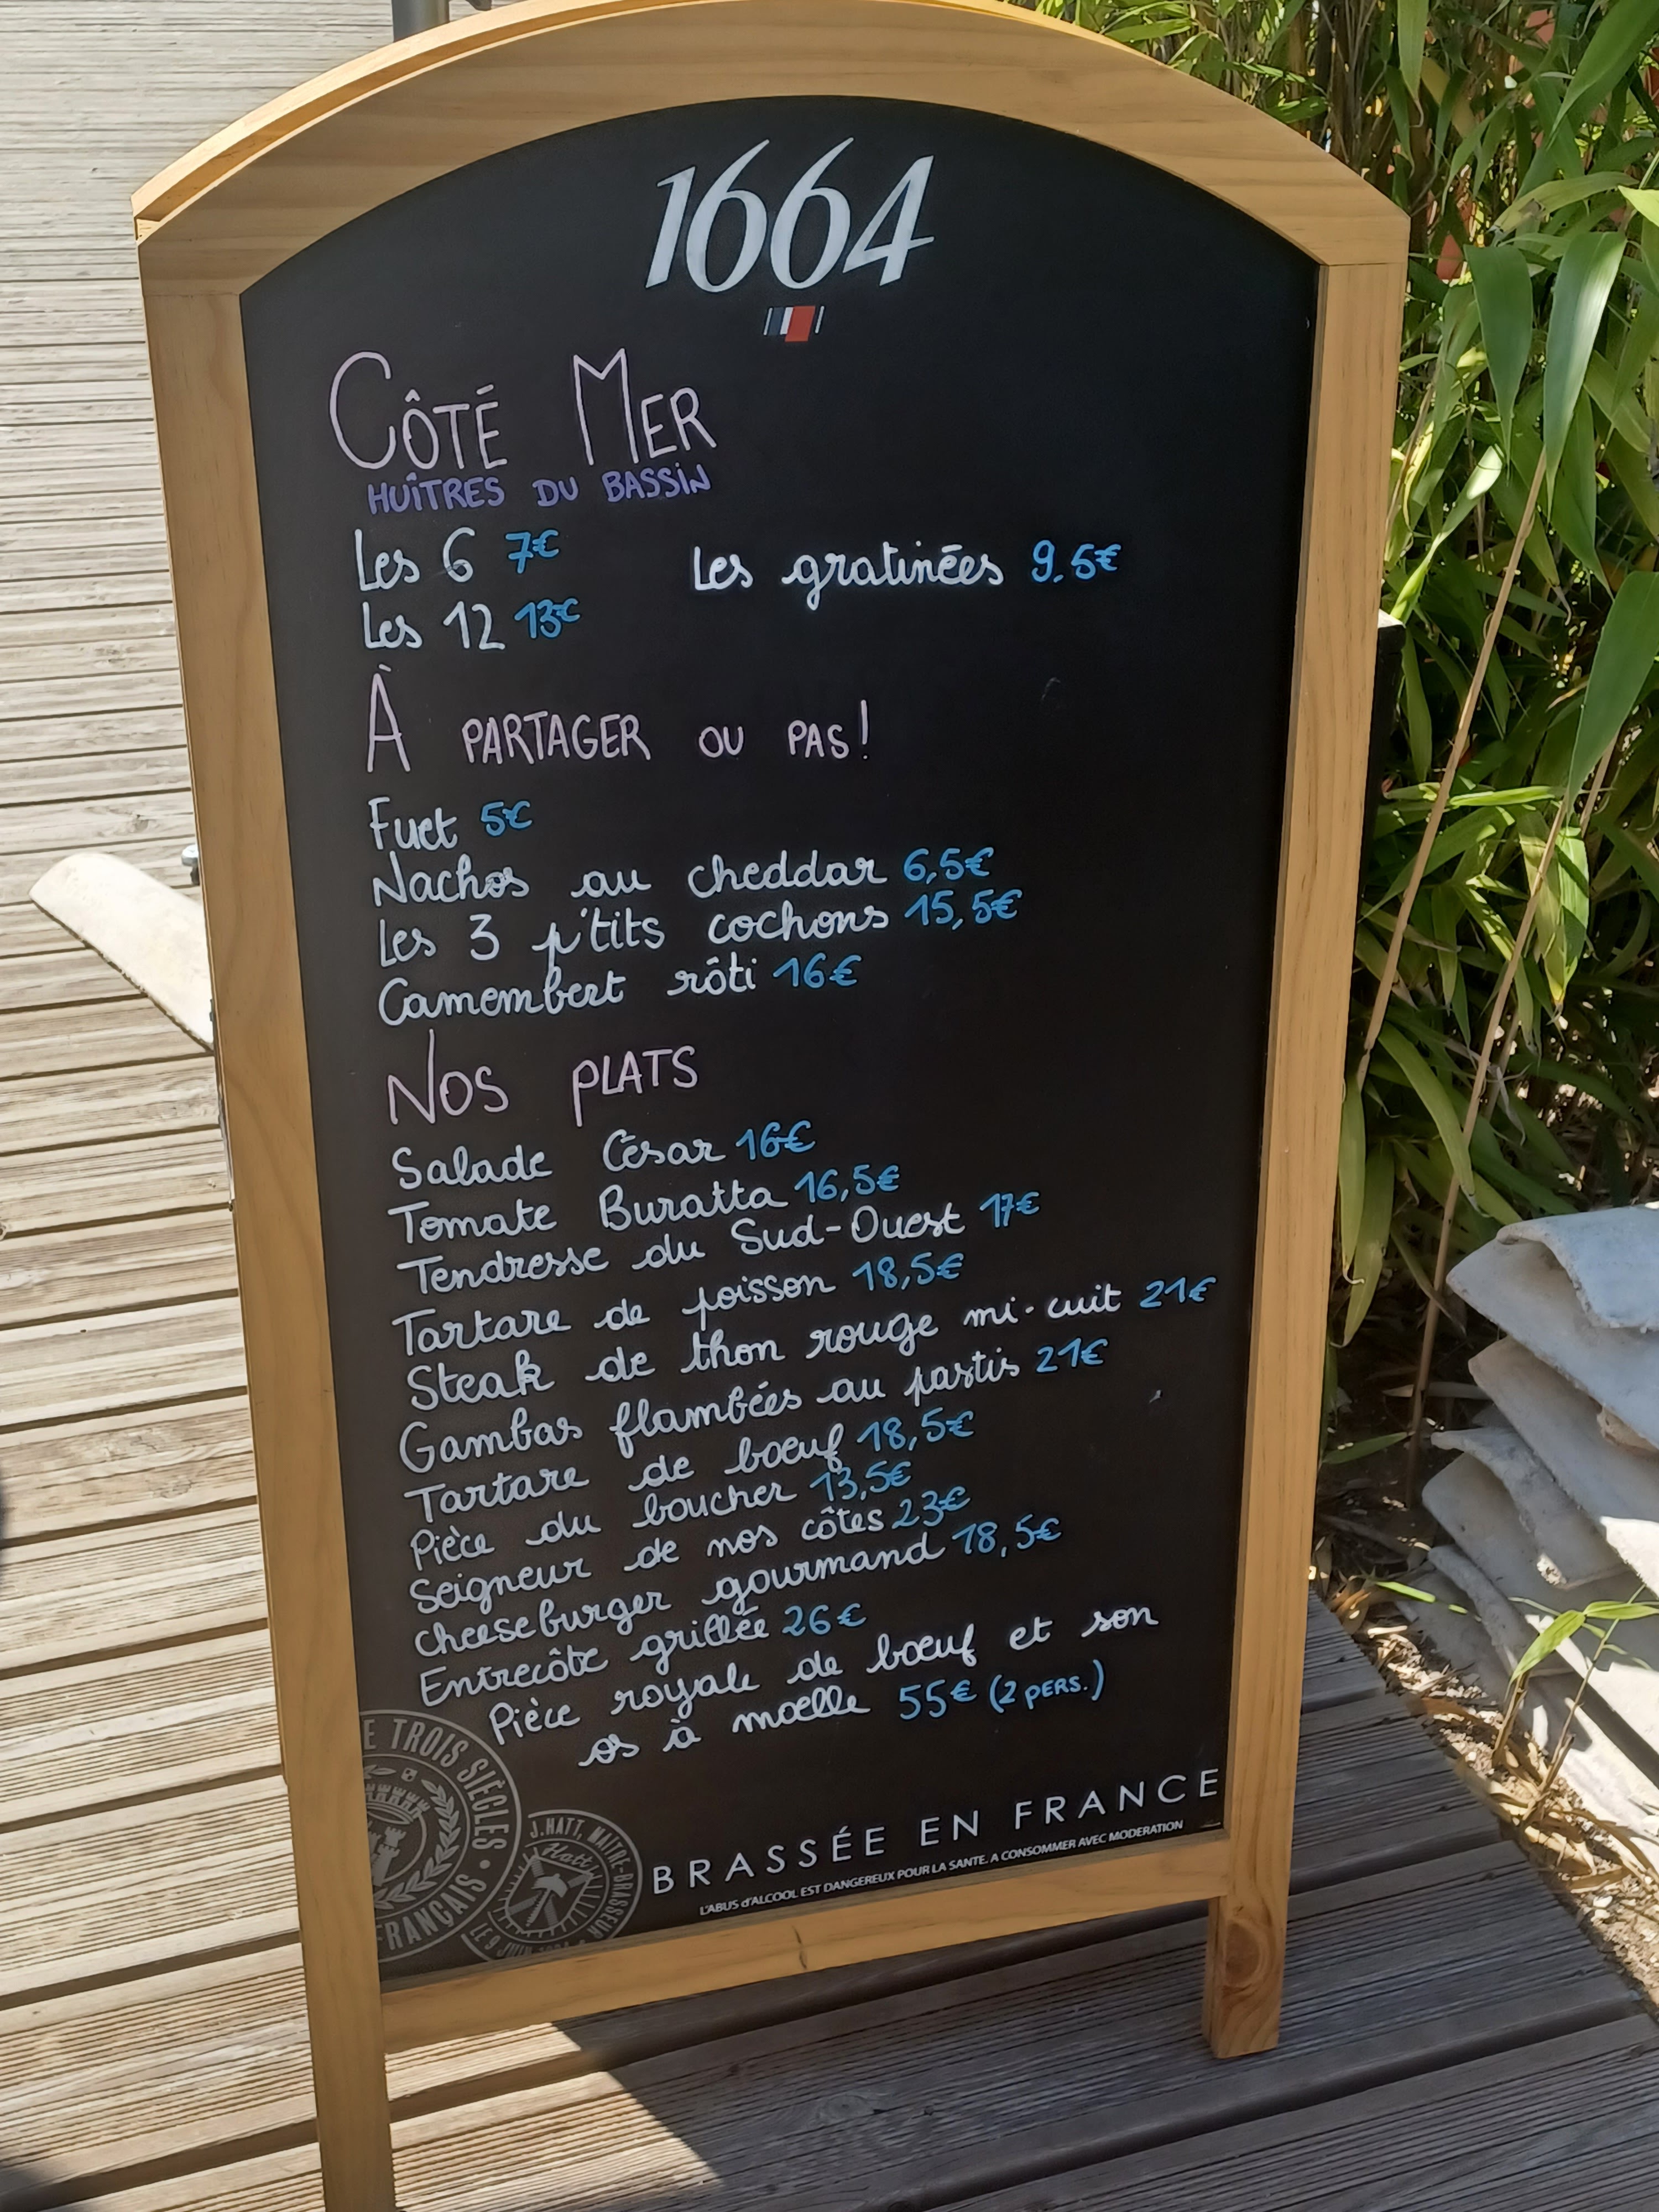 1664
CÔTÉ MER
HUÎTRES DU BASSIN
Les 6 7€
Les gratinées 9.5€
Les 12 13€
À PARTAGER OU PAS!
Fuet 5€
Nachos au cheddar 6,5€
Les 3 p'tits cochons 15,5€
Camembert rôti 16€
NOS PLATS
Salade César 16€
Tomate Buratta 16,5€
Tendresse du Sud-Ouest 17€
Tartare de poisson 18,5€
Steak de thon rouge mi-cuit 21€
Gambas flambées au pastis 21€
Tartare de bœuf 18,5€
Pièce du boucher 13,5€
Seigneur de nos côtes 23€
cheeseburger gourmand 18,5€
Entrecôte grillée 26€
Pièce royale de bœuf et son
os à moelle 55€ (2 PERS.)
E TROIS SIÈCLES • FRANÇAIS
J.HATT, MAITRE-BRASSEUR
Hatt
LE 9 JUIN
BRASSÉE EN FRANCE
L'ABUS d'ALCOOL EST DANGEREUX POUR LA SANTE. A CONSOMMER AVEC MODERATION